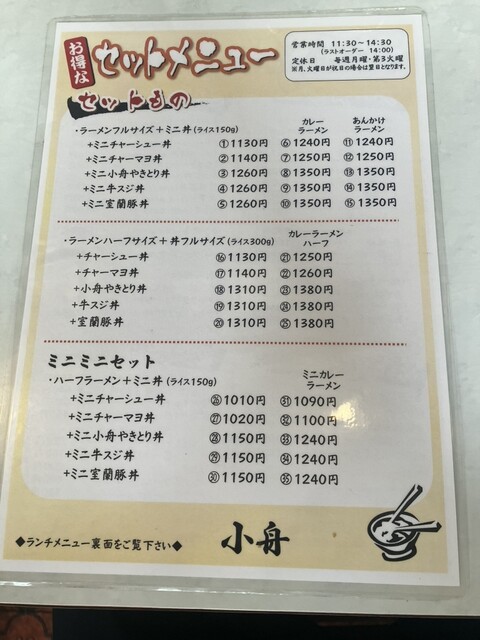 お得な セットメニュー
営業時間 11:30～14:30
(ラストオーダー 14:00)
定休日 毎週月曜・第3火曜
※月、火曜日が祝日の場合は翌日となります。
セットもの
カレーラーメン あんかけラーメン
・ラーメンフルサイズ＋ミニ丼 (ライス150g)
+ミニチャーシュー丼 ①1130円 ⑥1240円 ⑪1240円
+ミニチャーマヨ丼 ②1140円 ⑦1250円 ⑫1250円
+ミニ小舟やきとり丼 ③1260円 ⑧1350円 ⑬1350円
+ミニ牛スジ丼 ④1260円 ⑨1350円 ⑭1350円
+ミニ室蘭豚丼 ⑤1260円 ⑩1350円 ⑮1350円
・ラーメンハーフサイズ＋丼フルサイズ (ライス300g) カレーラーメンハーフ
+チャーシュー丼 ⑯1130円 ㉑1250円
+チャーマヨ丼 ⑰1140円 ㉒1260円
+小舟やきとり丼 ⑱1310円 ㉓1380円
+牛スジ丼 ⑲1310円 ㉔1380円
+室蘭豚丼 ⑳1310円 ㉕1380円
ミニミニセット
・ハーフラーメン＋ミニ丼 (ライス150g) ミニカレーラーメン
+ミニチャーシュー丼 ㉖1010円 ㉛1090円
+ミニチャーマヨ丼 ㉗1020円 ㉜1100円
+ミニ小舟やきとり丼 ㉘1150円 ㉝1240円
+ミニ牛スジ丼 ㉙1150円 ㉞1240円
+ミニ室蘭豚丼 ㉚1150円 ㉟1240円
◆ランチメニュー裏面をご覧下さい◆ 小舟